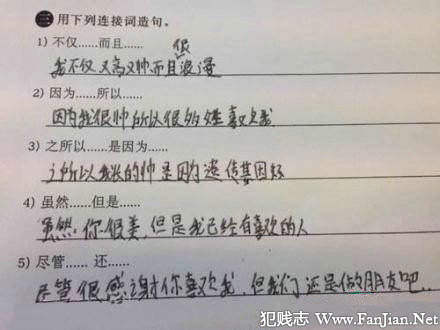 三 用下列连接词造句。
1) 不仅……而且……
我不仅又高又帅而且很浪漫
2) 因为……所以……
因为我很帅所以很多姓喜欢我
3) 之所以……是因为……
之所以我长的帅是因为遗传基因好
4) 虽然……但是……
虽然你很美,但是我已经有喜欢的人
5) 尽管…… 还……
尽管很感谢你喜欢我,但我们还是做朋友吧..
犯贱志 Www.FanJian.Net